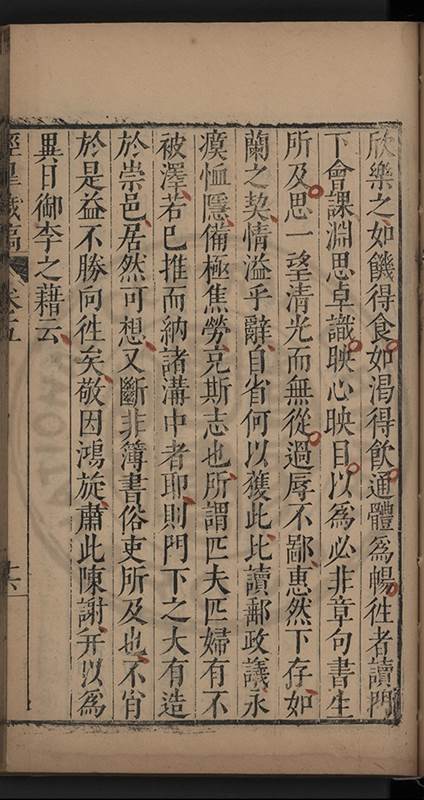 欣樂之如饑得食如渴得飲通體爲暢徃者讀門
下會課淵思卓識映心映目以爲必非章句書生
所及思一望清光而無從過辱不鄙惠然下存如
蘭之契情溢乎辭自省何以獲此比讀鄜政議永
瘼恤隱備極焦勞克斯志也所謂匹夫匹婦有不
被澤若已推而納諸溝中者耶則門下之大有造
於崇邑居然可想又斷非簿書俗吏所及也不肖
於是益不勝向徃矣敬因鴻旋肅此陳謝并以爲
異日御李之藉云
涇臯藏稿 卷五 十六